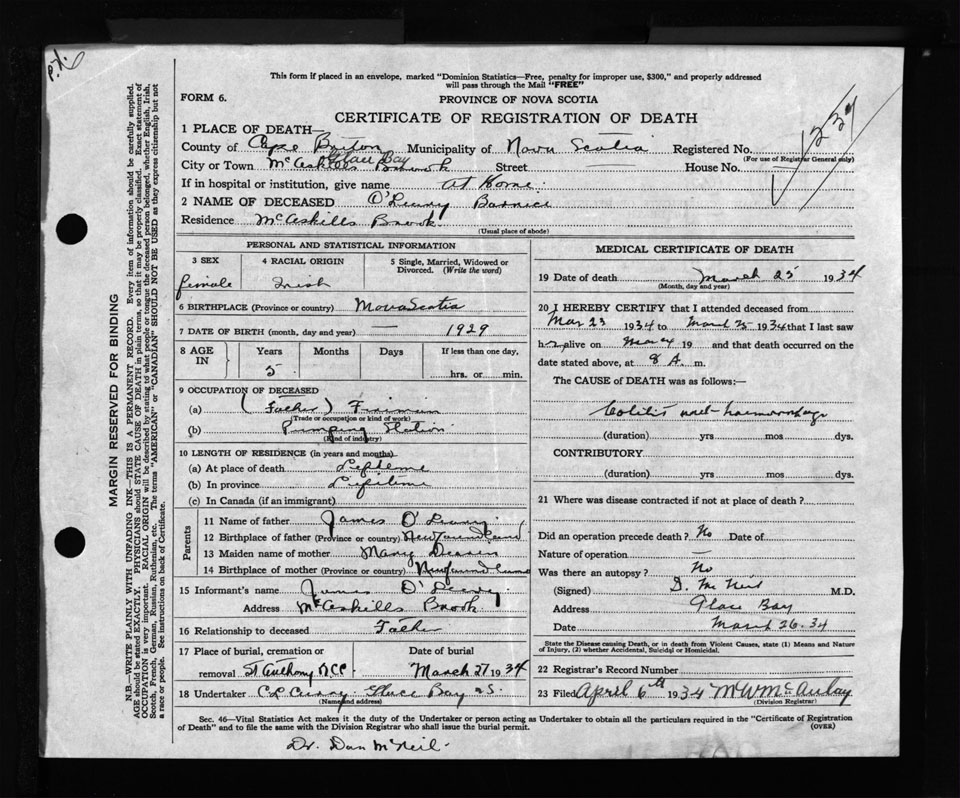 P.X.
MARGIN RESERVED FOR BINDING
N.B.—WRITE PLAINLY WITH UNFADING INK—THIS IS A PERMANENT RECORD. Every item of information should be carefully supplied.
AGE should be stated EXACTLY. PHYSICIANS should STATE CAUSE OF DEATH in plain terms, so that it may be properly classified. Exact statement of
OCCUPATION is very important. RACIAL ORIGIN will be described by stating to what people or tongue the deceased person belonged, whether English, Irish,
Scotch, French, German, Russian, Ruthenian, etc. The terms "AMERICAN" or "CANADIAN" SHOULD NOT BE USED as they express citizenship but not
a race or people. See instructions on back of Certificate.
This form if placed in an envelope, marked "Dominion Statistics—Free, penalty for improper use, $300," and properly addressed
will pass through the Mail "FREE"
FORM 6.
PROVINCE OF NOVA SCOTIA
CERTIFICATE OF REGISTRATION OF DEATH
1 PLACE OF DEATH—
County of Cape Breton Municipality of Nova Scotia Registered No.
(For use of Registrar General only)
Glace Bay
City or Town McAskills Brook Street House No.
If in hospital or institution, give name at Home
2 NAME OF DECEASED O'Leary Barnice
Residence McAskills Brook
(Usual place of abode)
PERSONAL AND STATISTICAL INFORMATION
3 SEX 4 RACIAL ORIGIN 5 Single, Married, Widowed or
Divorced. (Write the word)
female Irish
6 BIRTHPLACE (Province or country) Nova Scotia
7 DATE OF BIRTH (month, day and year) — 1929
8 AGE IN Years Months Days If less than one day,
5 hrs. or min.
9 OCCUPATION OF DECEASED
(a) (Father) Fireman
(Trade or occupation or kind of work)
(b) Pumping Station
(Kind of industry)
10 LENGTH OF RESIDENCE (in years and months)
(a) At place of death Lifetime
(b) In province Lifetime
(c) In Canada (if an immigrant)
Parents
11 Name of father James O'Leary
12 Birthplace of father (Province or country) Newfoundland
13 Maiden name of mother Mary
14 Birthplace of mother (Province or country) Newfoundland
15 Informant's name James O'Leary
Address McAskills Brook
16 Relationship to deceased Father
17 Place of burial, cremation or Date of burial
removal St Anthony RCC March 27 1934
18 Undertaker C L Curry Glace Bay NS
(Name and address)
MEDICAL CERTIFICATE OF DEATH
19 Date of death March 25 1934
(Month, day and year)
20 I HEREBY CERTIFY that I attended deceased from
Mar 23 1934 to March 25 1934 that I last saw
her alive on 19 and that death occurred on the
date stated above, at 8 A. m.
The CAUSE of DEATH was as follows:—
Colitis with haemorrhage
(duration) yrs mos dys.
CONTRIBUTORY
(duration) yrs mos dys.
21 Where was disease contracted if not at place of death?
Did an operation precede death? No Date of
Nature of operation —
Was there an autopsy? No
(Signed) D. McNeil M.D.
Address Glace Bay
Date March 26.34
State the Disease causing Death, or in death from Violent Causes, state (1) Means and Nature
of Injury, (2) whether Accidental, Suicidal or Homicidal.
22 Registrar's Record Number
23 Filed April 6th 1934 M W McAulay
(Division Registrar)
Sec. 46—Vital Statistics Act makes it the duty of the Undertaker or person acting as Undertaker to obtain all the particulars required in the "Certificate of Registration
of Death" and to file the same with the Division Registrar who shall issue the burial permit.
(OVER)
Dr. Dan McNeil.